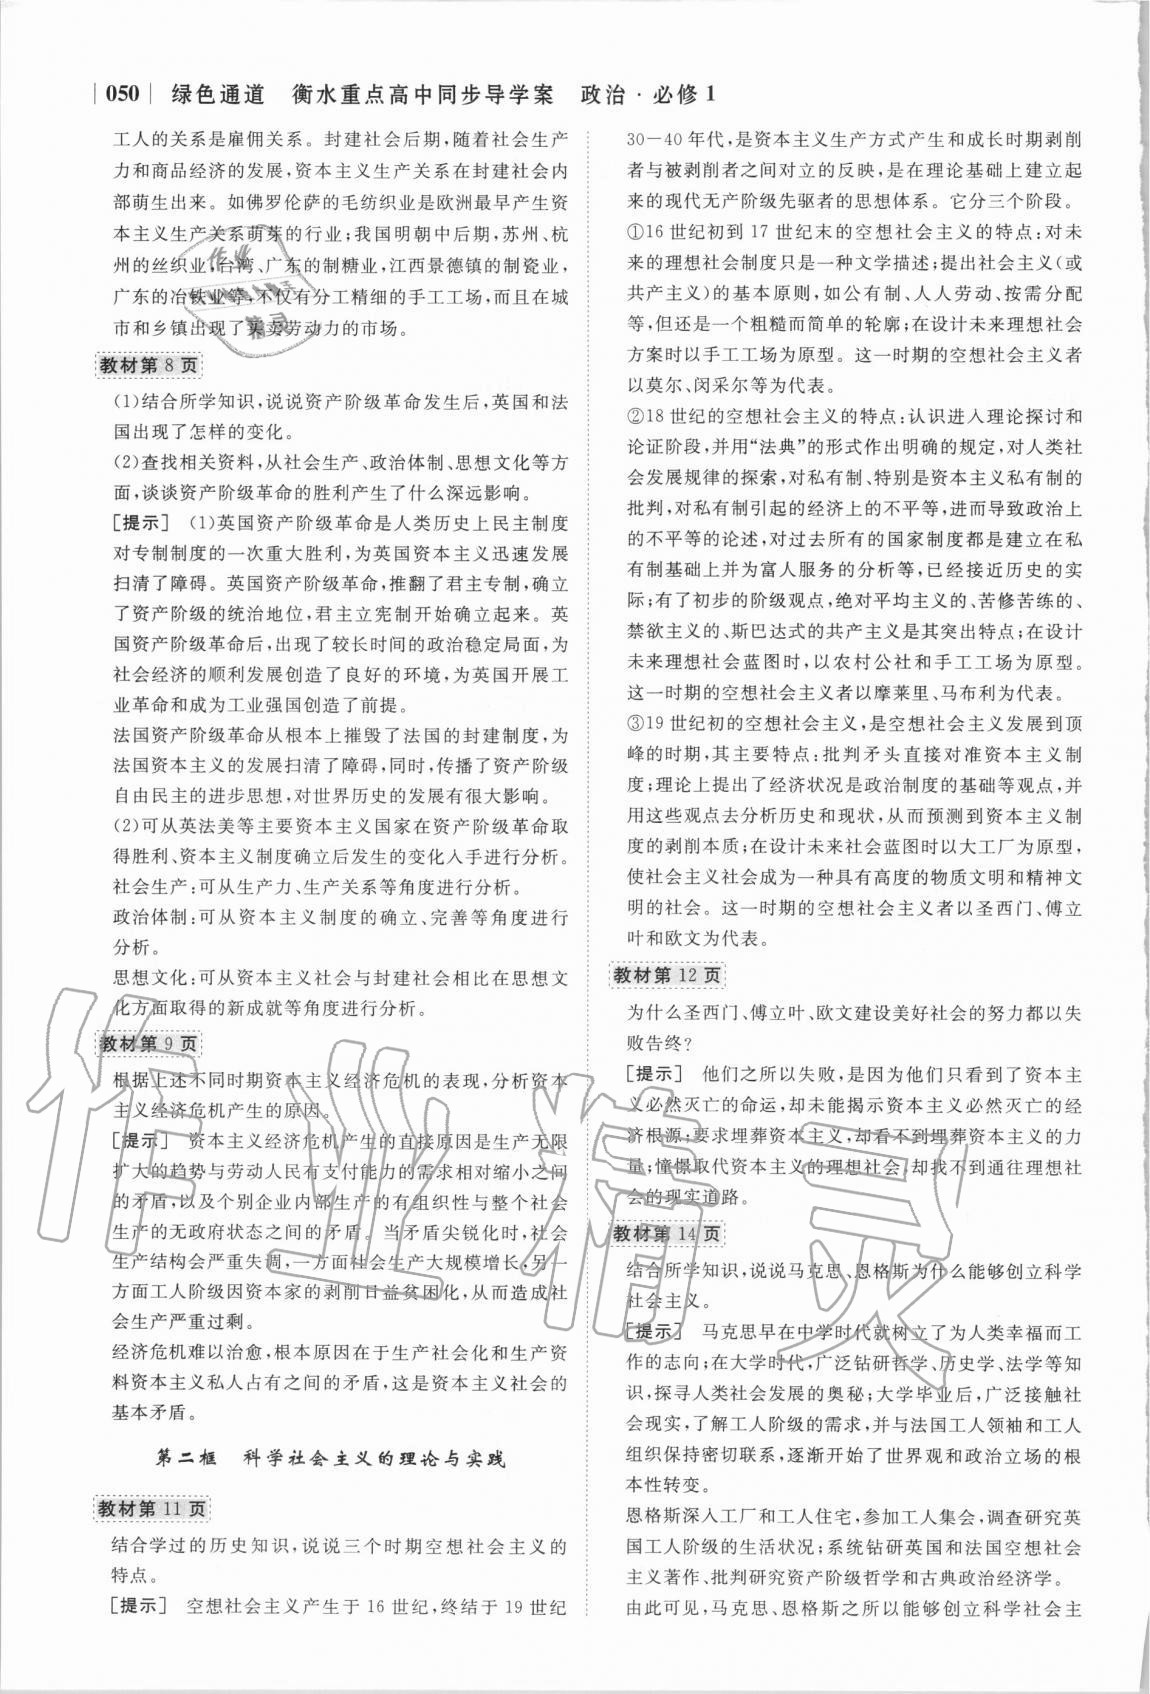 050 绿色通道 衡水重点高中同步导学案 政治·必修1
工人的关系是雇佣关系。封建社会后期,随着社会生产
力和商品经济的发展,资本主义生产关系在封建社会内
部萌生出来。如佛罗伦萨的毛纺织业是欧洲最早产生资
本主义生产关系萌芽的行业;我国明朝中后期,苏州、杭
州的丝织业,台湾、广东的制糖业,江西景德镇的制瓷业,
广东的冶铁业等,不仅有分工精细的手工工场,而且在城
市和乡镇出现了买卖劳动力的市场。
教材第8页
(1)结合所学知识,说说资产阶级革命发生后,英国和法
国出现了怎样的变化。
(2)查找相关资料,从社会生产、政治体制、思想文化等方
面,谈谈资产阶级革命的胜利产生了什么深远影响。
[提示] (1)英国资产阶级革命是人类历史上民主制度
对专制制度的一次重大胜利,为英国资本主义迅速发展
扫清了障碍。英国资产阶级革命,推翻了君主专制,确立
了资产阶级的统治地位,君主立宪制开始建立起来。英
国资产阶级革命后,出现了较长时间的政治稳定局面,为
社会经济的顺利发展创造了良好的环境,为英国开展工
业革命和成为工业强国创造了前提。
法国资产阶级革命从根本上摧毁了法国的封建制度,为
法国资本主义的发展扫清了障碍,同时,传播了资产阶级
自由民主的进步思想,对世界历史的发展有很大影响。
(2)可从英法美等主要资本主义国家在资产阶级革命取
得胜利、资本主义制度确立后发生的变化入手进行分析。
社会生产:可从生产力、生产关系等角度进行分析。
政治体制:可从资本主义制度的确立、完善等角度进行
分析。
思想文化:可从资本主义社会与封建社会相比在思想文
化方面取得的新成就等角度进行分析。
教材第9页
根据上述不同时期资本主义经济危机的表现,分析资本
主义经济危机产生的原因。
[提示] 资本主义经济危机产生的直接原因是生产无限
扩大的趋势与劳动人民有支付能力的需求相对缩小之间
的矛盾,以及个别企业内部生产的有组织性与整个社会
生产的无政府状态之间的矛盾。当矛盾尖锐化时,社会
生产结构会严重失调,一方面社会生产大规模增长,另一
方面工人阶级因资本家的剥削日益贫困化,从而造成社
会生产严重过剩。
经济危机难以治愈,根本原因在于生产社会化和生产资
料资本主义私人占有之间的矛盾,这是资本主义社会的
基本矛盾。
第二框 科学社会主义的理论与实践
教材第11页
结合学过的历史知识,说说三个时期空想社会主义的
特点。
[提示] 空想社会主义产生于16世纪,终结于19世纪
30—40年代,是资本主义生产方式产生和成长时期剥削
者与被剥削者之间对立的反映,是在理论基础上建立起
来的现代无产阶级先驱者的思想体系。它分三个阶段。
①16世纪初到17世纪末的空想社会主义的特点:对未
来的理想社会制度只是一种文学描述;提出社会主义(或
共产主义)的基本原则,如公有制、人人劳动、按需分配
等,但还是一个粗糙而简单的轮廓;在设计未来理想社会
方案时以手工工场为原型。这一时期的空想社会主义者
以莫尔、闵采尔等为代表。
②18世纪的空想社会主义的特点:认识进入理论探讨和
论证阶段,并用“法典”的形式作出明确的规定,对人类社
会发展规律的探索,对私有制、特别是资本主义私有制的
批判,对私有制引起的经济上的不平等,进而导致政治上
的不平等的论述,对过去所有的国家制度都是建立在私
有制基础上并为富人服务的分析等,已经接近历史的实
际;有了初步的阶级观点,绝对平均主义的、苦修苦练的、
禁欲主义的、斯巴达式的共产主义是其突出特点;在设计
未来理想社会蓝图时,以农村公社和手工工场为原型。
这一时期的空想社会主义者以摩莱里、马布利为代表。
③19世纪初的空想社会主义,是空想社会主义发展到顶
峰的时期,其主要特点:批判矛头直接对准资本主义制
度;理论上提出了经济状况是政治制度的基础等观点,并
用这些观点去分析历史和现状,从而预测到资本主义制
度的剥削本质;在设计未来社会蓝图时以大工厂为原型,
使社会主义社会成为一种具有高度的物质文明和精神文
明的社会。这一时期的空想社会主义者以圣西门、傅立
叶和欧文为代表。
教材第12页
为什么圣西门、傅立叶、欧文建设美好社会的努力都以失
败告终?
[提示] 他们之所以失败,是因为他们只看到了资本主
义必然灭亡的命运,却未能揭示资本主义必然灭亡的经
济根源;要求埋葬资本主义,却看不到埋葬资本主义的力
量;憧憬取代资本主义的理想社会,却找不到通往理想社
会的现实道路。
教材第14页
结合所学知识,说说马克思、恩格斯为什么能够创立科学
社会主义。
[提示] 马克思早在中学时代就树立了为人类幸福而工
作的志向;在大学时代,广泛钻研哲学、历史学、法学等知
识,探寻人类社会发展的奥秘;大学毕业后,广泛接触社
会现实,了解工人阶级的需求,并与法国工人领袖和工人
组织保持密切联系,逐渐开始了世界观和政治立场的根
本性转变。
恩格斯深入工厂和工人住宅,参加工人集会,调查研究英
国工人阶级的生活状况;系统钻研英国和法国空想社会
主义著作、批判研究资产阶级哲学和古典政治经济学。
由此可见,马克思、恩格斯之所以能够创立科学社会主
作业精灵